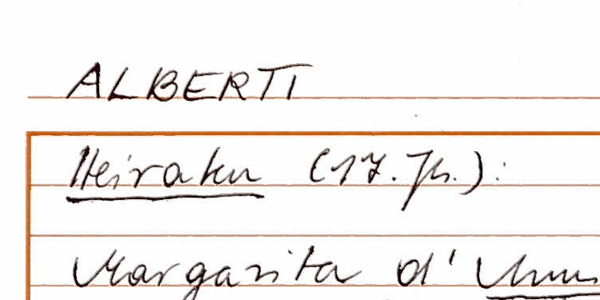 ALBERTI
Heiraten (17. Jh.):
Margarita d'